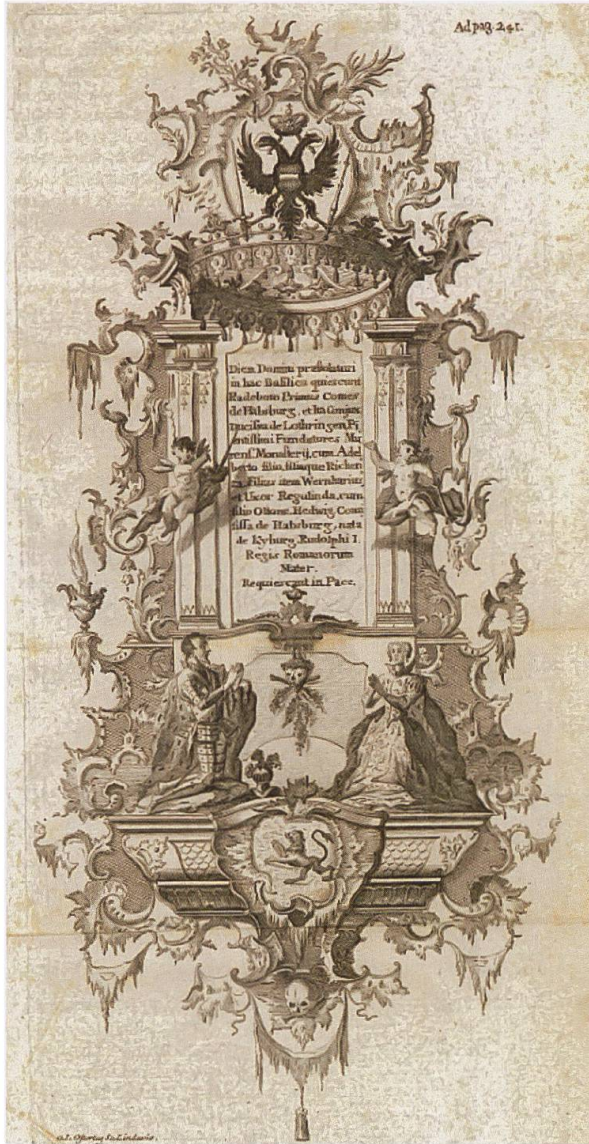 Ad pag. 241.
Diem Domini præstolaturi
in hac Basilica quiescunt
Radeboto Primus Comes
de Habsburg, et Ita Conjux
Ducissa de Lothringen, Pi
entissimi Fundatores Mu
rens. Monasterij, cum Adel
berto filio, filiaque Richen
za. Filius item Wernharius
et Uxor Regulinda, cum
filio Ottone. Hedwig Comi
tissa de Habsburg, nata
de Kyburg, Rudolphi I.
Regis Romanorum
Mater.
Requiescant in Pace.